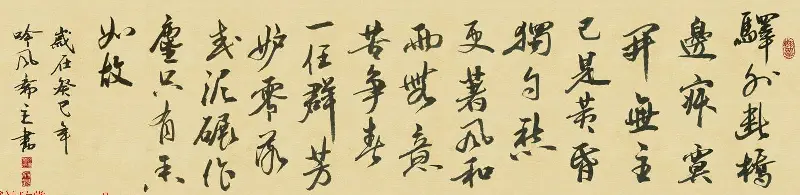 驛外断橋
邊寂寞
開無主
已是黄昏
獨自愁
更著風和
雨無意
苦争春
一任群芳
妒零落
成泥碾作
塵只有香
如故
歲在癸巳年
吟風齋主書